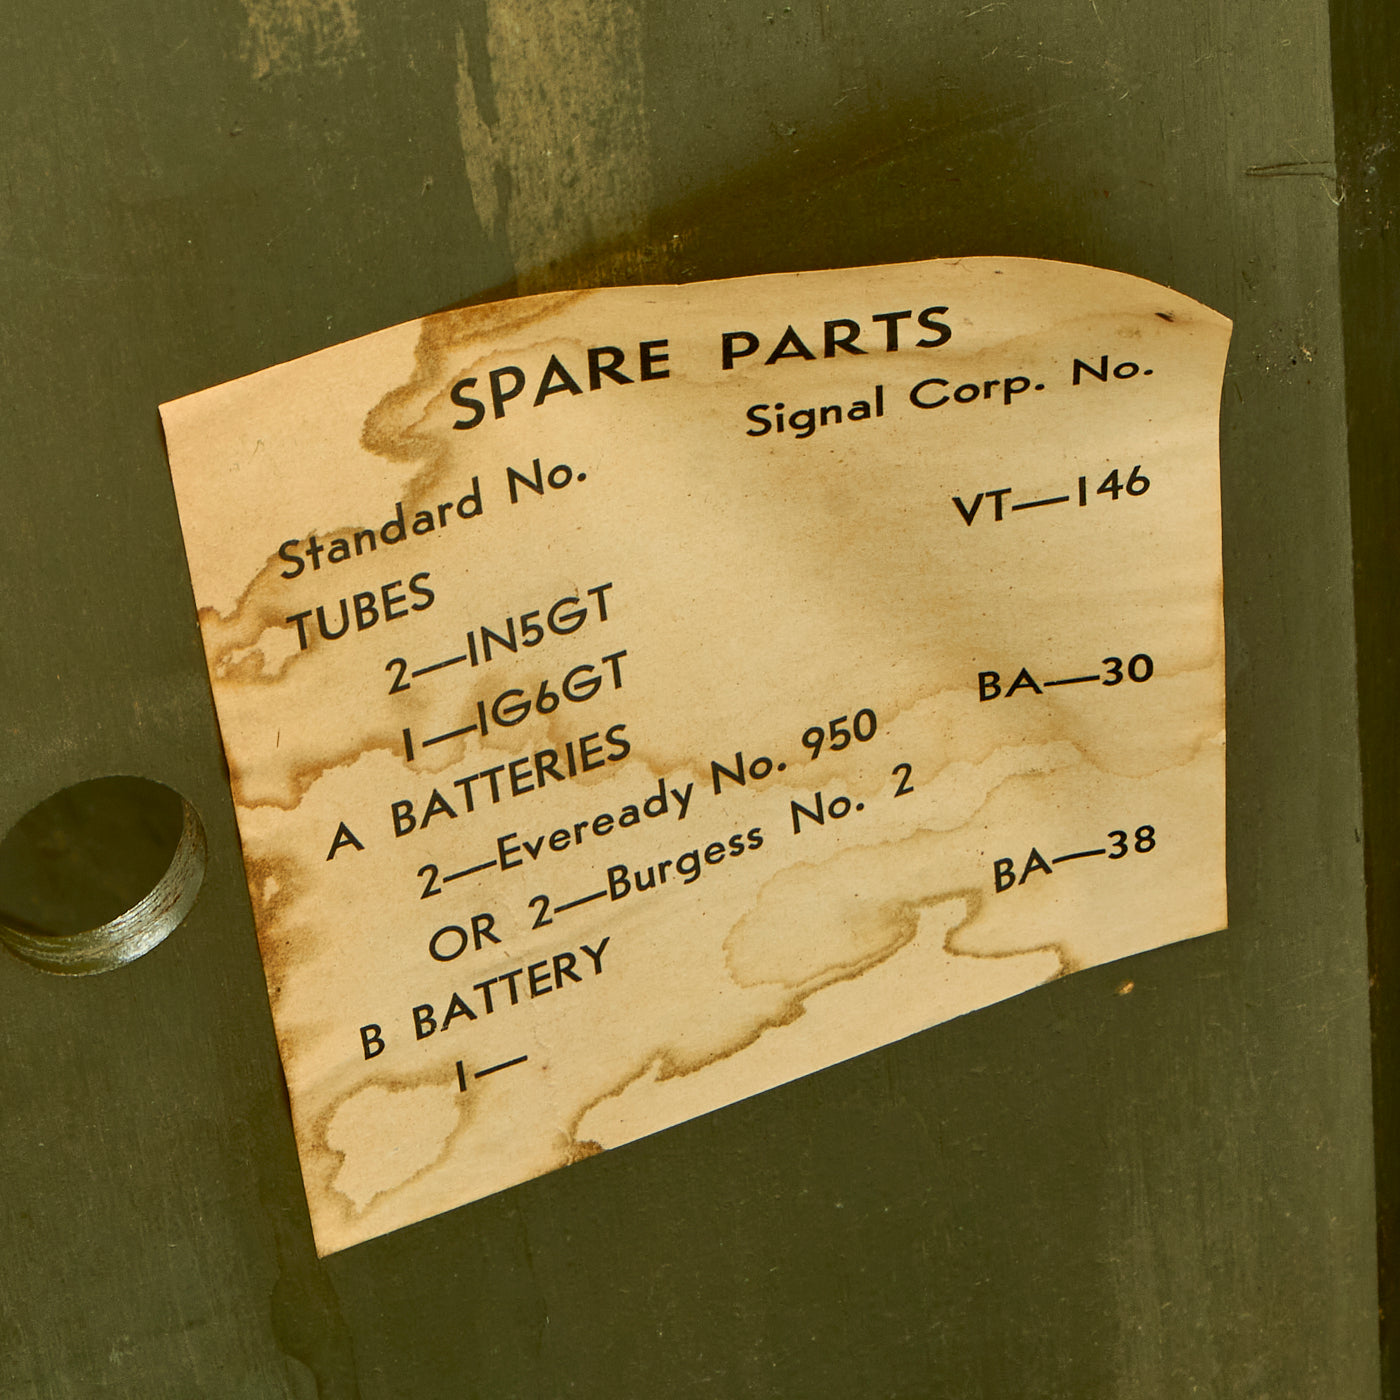 SPARE PARTS
Standard No. Signal Corp. No.
TUBES
2—IN5GT VT—146
1—IG6GT
A BATTERIES
2—Eveready No. 950 BA—30
OR 2—Burgess No. 2
B BATTERY
1— BA—38